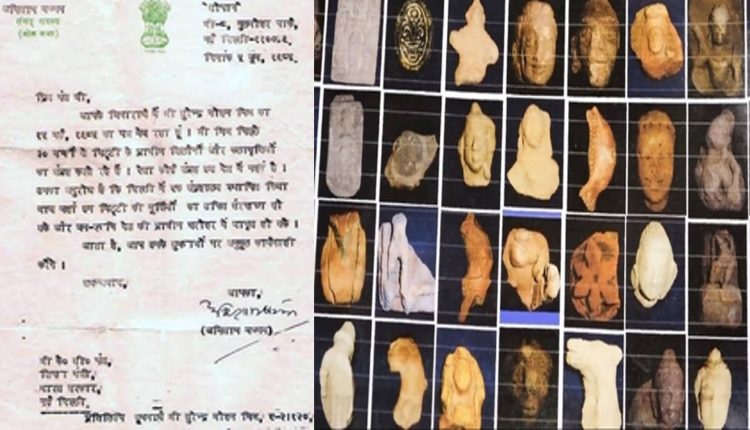 अमिताभ बच्चन
संसद् सदस्य
(लोक सभा)
गुलमोहर पार्क,
नई दिल्ली
दिनांक ५ जून,
प्रिय पंत जी,
आपके विचारार्थ मैं श्री सुरेन्द्र मोहन मिश्र का
का पत्र भेज रहा हूँ । श्री मिश्र पिछले
३० वर्षों से मिट्टी के प्राचीन खिलौनों और कलाकृतियों
का संग्रह करते रहे हैं । ऐसा कोई संग्रह इस देश में नहीं है ।
उनका अनुरोध है कि दिल्ली में एक संग्रहालय स्थापित किया
जाय जहां इन मिट्टी की मूर्तियों का उचित संरक्षण हो
सके और जन-रुचि देश की प्राचीन धरोहर में जागृत हो सके ।
आशा है, आप उनके सुझावों पर समुचित कार्यवाही
करेंगे ।
सधन्यवाद,
आपका,
(अमिताभ बच्चन)
श्री के० सी० पंत,
शिक्षा मंत्री,
भारत सरकार,
नई दिल्ली.
प्रतिलिपि सूचनार्थ श्री सुरेन्द्र मोहन मिश्र,